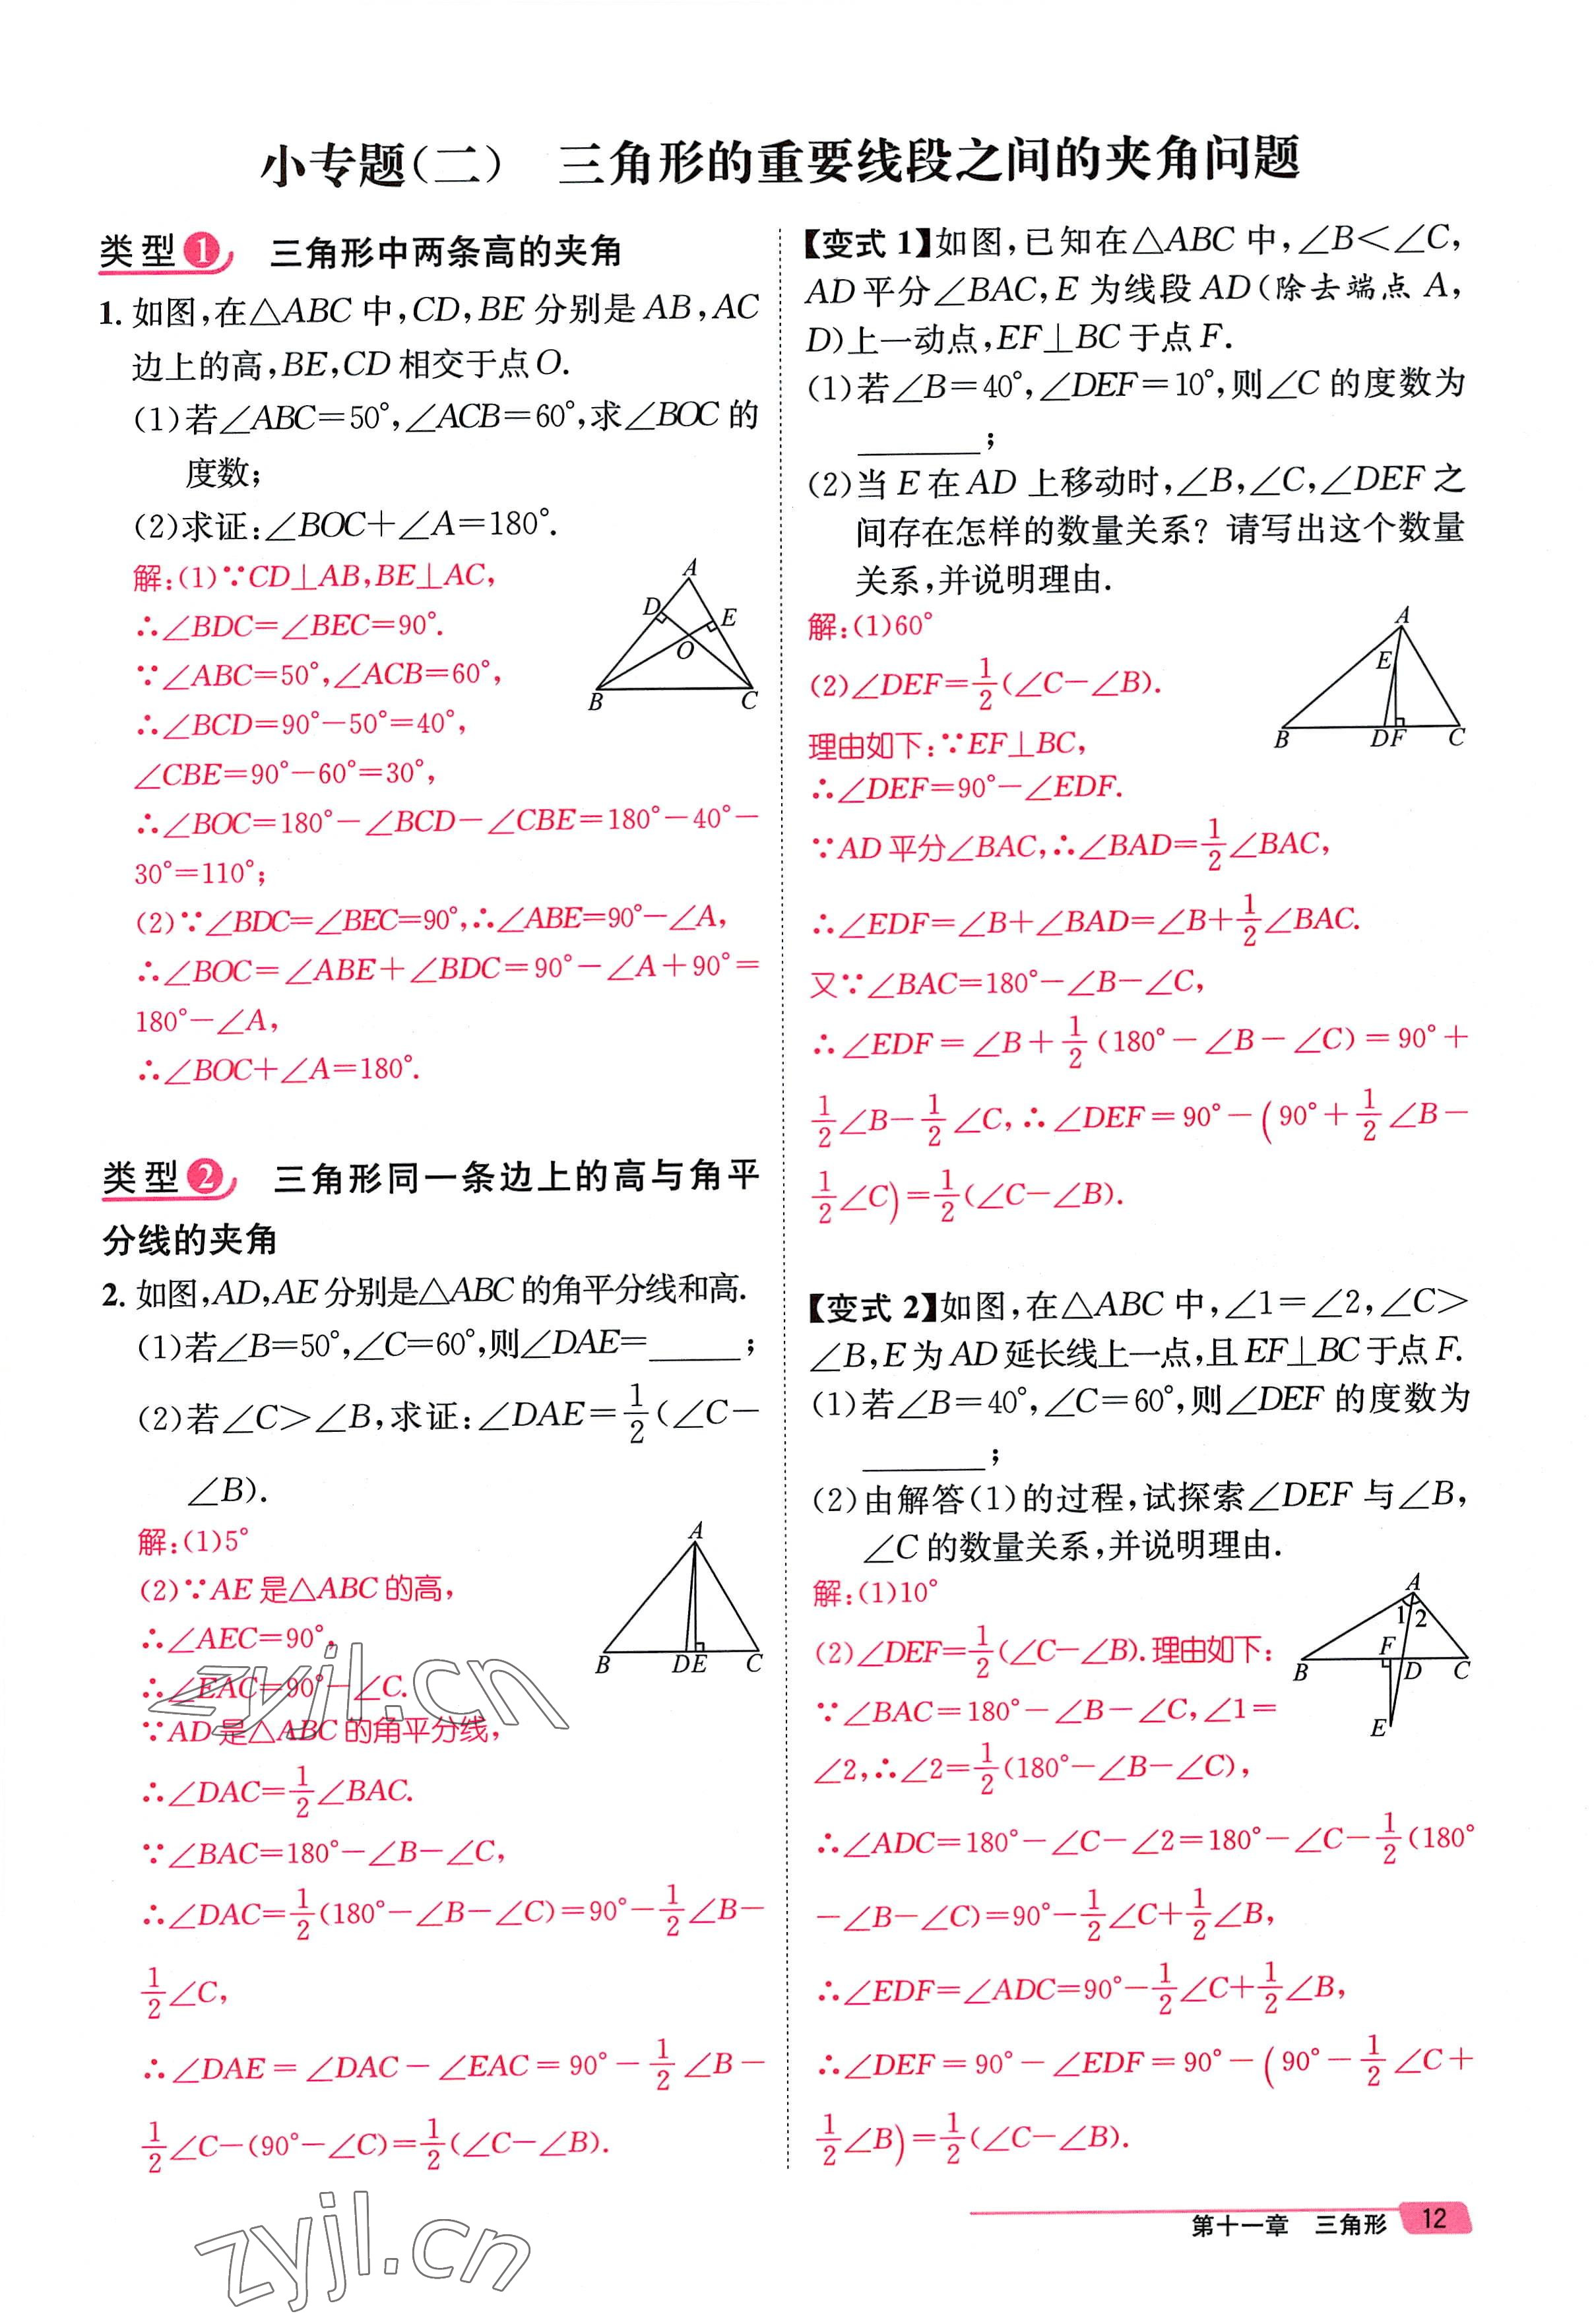 小专题(二) 三角形的重要线段之间的夹角问题
类型1 三角形中两条高的夹角
1. 如图,在△ABC中,CD,BE分别是AB,AC
边上的高,BE,CD相交于点O.
(1)若∠ABC=50°,∠ACB=60°,求∠BOC的
度数;
(2)求证:∠BOC+∠A=180°.
解:(1)∵CD⊥AB,BE⊥AC,
∴∠BDC=∠BEC=90°.
∵∠ABC=50°,∠ACB=60°,
∴∠BCD=90°-50°=40°,
∠CBE=90°-60°=30°,
∴∠BOC=180°-∠BCD-∠CBE=180°-40°-
30°=110°;
(2)∵∠BDC=∠BEC=90°,∴∠ABE=90°-∠A,
∴∠BOC=∠ABE+∠BDC=90°-∠A+90°=
180°-∠A,
∴∠BOC+∠A=180°.
A
D
E
O
B
C
类型2 三角形同一条边上的高与角平
分线的夹角
2. 如图,AD,AE分别是△ABC的角平分线和高.
(1)若∠B=50°,∠C=60°,则∠DAE=______;
(2)若∠C>∠B,求证:∠DAE=1/2(∠C-
∠B).
解:(1)5°
(2)∵AE是△ABC的高,
∴∠AEC=90°,
∴∠EAC=90°-∠C.
∵AD是△ABC的角平分线,
∴∠DAC=1/2∠BAC.
∵∠BAC=180°-∠B-∠C,
∴∠DAC=1/2(180°-∠B-∠C)=90°-1/2∠B-
1/2∠C,
∴∠DAE=∠DAC-∠EAC=90°-1/2∠B-
1/2∠C-(90°-∠C)=1/2(∠C-∠B).
A
B
D
E
C
【变式1】如图,已知在△ABC中,∠B<∠C,
AD平分∠BAC,E为线段AD(除去端点A,
D)上一动点,EF⊥BC于点F.
(1)若∠B=40°,∠DEF=10°,则∠C的度数为
________;
(2)当E在AD上移动时,∠B,∠C,∠DEF之
间存在怎样的数量关系?请写出这个数量
关系,并说明理由.
解:(1)60°
(2)∠DEF=1/2(∠C-∠B).
理由如下:∵EF⊥BC,
∴∠DEF=90°-∠EDF.
∵AD平分∠BAC,∴∠BAD=1/2∠BAC,
∴∠EDF=∠B+∠BAD=∠B+1/2∠BAC.
又∵∠BAC=180°-∠B-∠C,
∴∠EDF=∠B+1/2(180°-∠B-∠C)=90°+
1/2∠B-1/2∠C,∴∠DEF=90°-(90°+1/2∠B-
1/2∠C)=1/2(∠C-∠B).
A
E
B
D
F
C
【变式2】如图,在△ABC中,∠1=∠2,∠C>
∠B,E为AD延长线上一点,且EF⊥BC于点F.
(1)若∠B=40°,∠C=60°,则∠DEF的度数为
________;
(2)由解答(1)的过程,试探索∠DEF与∠B,
∠C的数量关系,并说明理由.
解:(1)10°
(2)∠DEF=1/2(∠C-∠B).理由如下:
∵∠BAC=180°-∠B-∠C,∠1=
∠2,∴∠2=1/2(180°-∠B-∠C),
∴∠ADC=180°-∠C-∠2=180°-∠C-1/2(180°
-∠B-∠C)=90°-1/2∠C+1/2∠B,
∴∠EDF=∠ADC=90°-1/2∠C+1/2∠B,
∴∠DEF=90°-∠EDF=90°-(90°-1/2∠C+
1/2∠B)=1/2(∠C-∠B).
A
1
2
F
B
D
C
E
zyjl.cn
zyjl.cn
第十一章 三角形 12